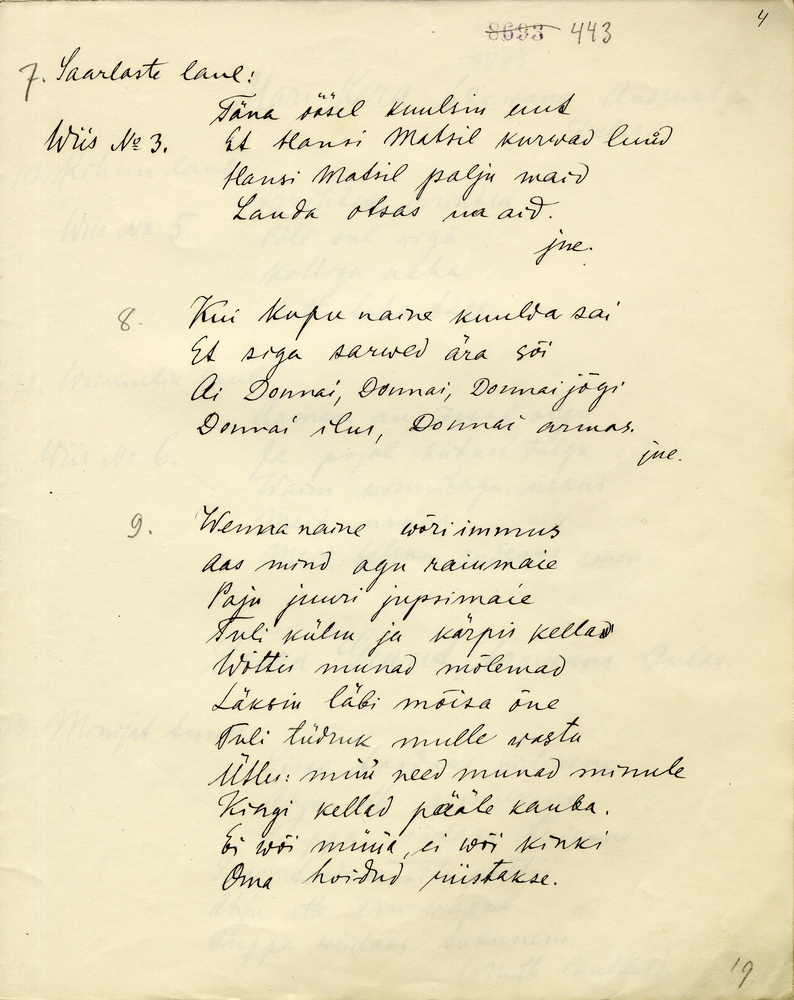 4
8693 443
7. Saarlaste laul:
Täna öösel kuulsin uut
Wiis № 3. Et Hansi Matsil kurwad luud
Hansi Matsil palju maid
Lauda otsas na aid.
jne.
8. Kui Kupu naine kuulda sai
Et siga sarwed ära sõi
Ai Donnai, Donnai, Donnai jõgi
Donnai ilus, Donnai armas.
jne.
9. Wenna naine wõri immus
Aas mind agu raiumaie
Paju juuri jupsimaie
Tuli külm ja kärpis kellad
Wõttis munad mõlemad
Läksin läbi mõisa õue
Tuli tüdruk mulle wasta
Ütles: müü need munad minule
Kingi kellad pääle kauba.
Ei wõi müüa, ei wõi kinki
Oma hoidud riistakse.
19